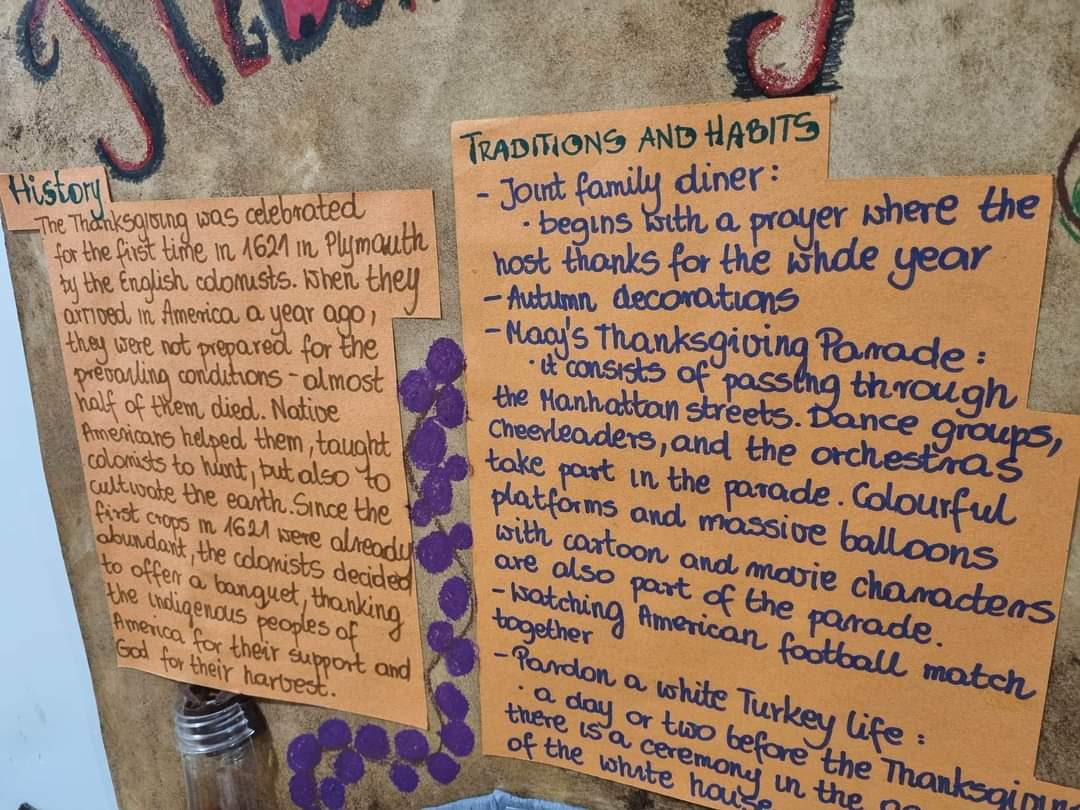 History
The Thanksgiving was celebrated
for the first time in 1621 in Plymouth
by the English colonists. When they
arrived in America a year ago,
they were not prepared for the
prevailing conditions - almost
half of them died. Native
Americans helped them, taught
colonists to hunt, but also to
cultivate the earth. Since the
first crops in 1621 were already
abundant, the colonists decided
to offer a banquet, thanking
the indigenous peoples of
America for their support and
God for their harvest.
TRADITIONS AND HABITS
- Joint family diner:
· begins with a prayer where the
host thanks for the whole year
- Autumn decorations
- Macy's Thanksgiving Parade:
· it consists of passing through
the Manhattan streets. Dance groups,
cheerleaders, and the orchestras
take part in the parade. Colourful
platforms and massive balloons
with cartoon and movie characters
are also part of the parade.
- Watching American football match
together
- Pardon a white Turkey life:
· a day or two before the Thanksgiving
there is a ceremony in the
of the white house